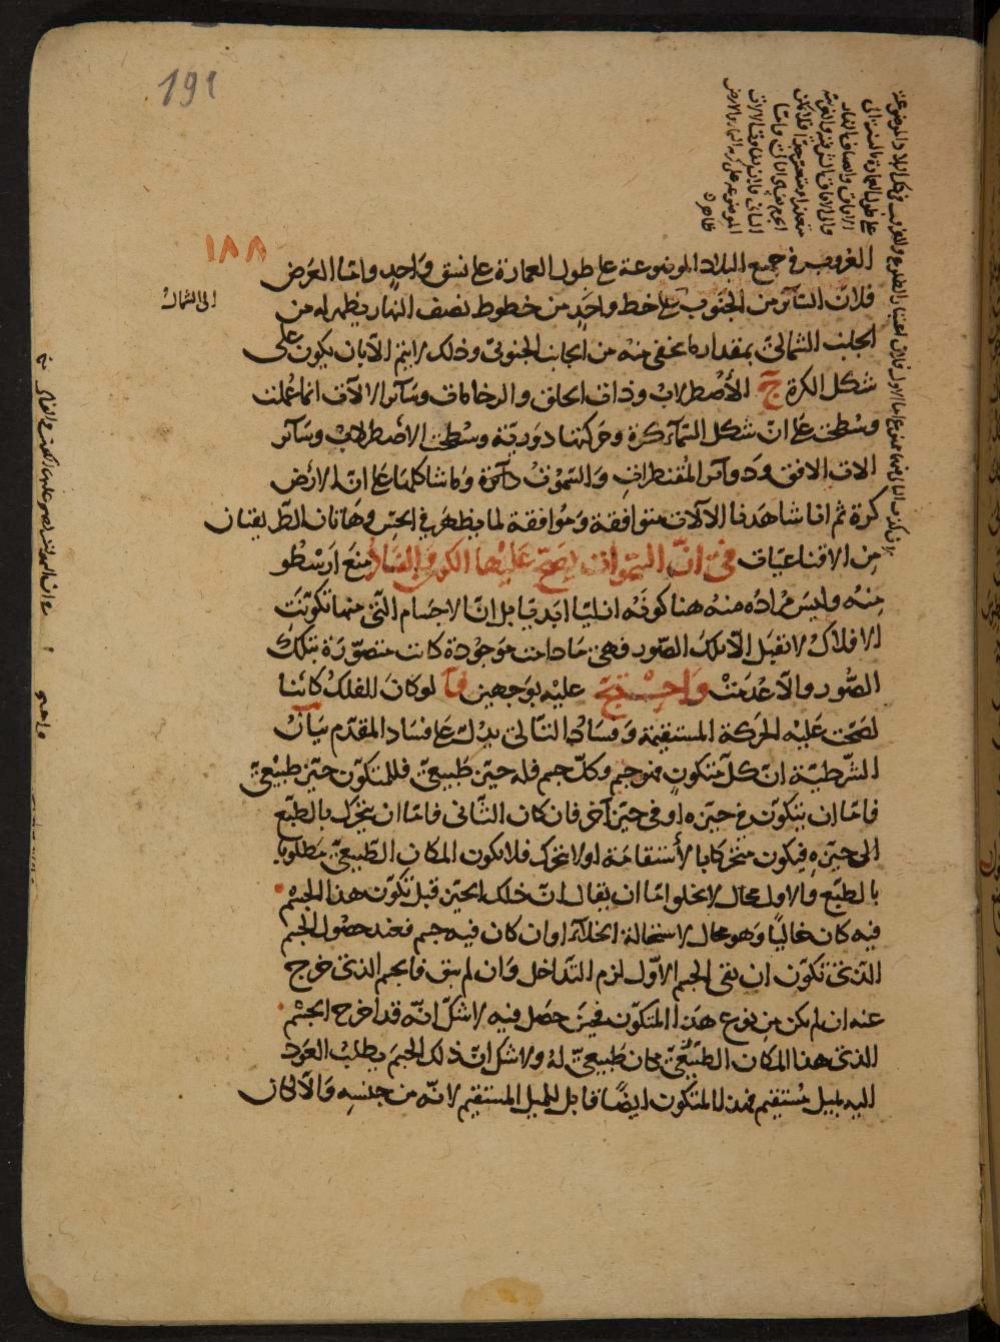 191
١٨٨
الغروب في جميع البلاد الموضوعة على طول العمارة على نسق واحد واما العرض
فلان السائر من الجنوب على خط واحد من خطوط نصف النهار يظهر له من
الى الشمال
الجانب الشمالي بمقدار ما يخفى منه من الجانب الجنوبي وذلك لا يتم الا بان يكون على
شكل الكرة ج الأصطرلاب وذات الحلق والرخامات وسائر الآلات انما عملت
وسطحت على ان شكل السماء كرة وحركتها دورية وسطحت الأصطرلاب وسائر
الات الافق ودوائر المقنطرات والسموت دائرة وما شاكلها على ان الارض
كرة ثم انا شاهدنا الآلات متوافقة وموافقة لما يظهر في الحس وهاتان الطريقتان
من الاقناعيات في ان السموات يصح عليها الكون والفساد منع ارسطو
منه وليس مراده منه هنا كونه انليا ابديا بل ان الاجسام التي منها تكونت
الافلاك لا تقبل الا تلك الصور فهي ما دامت موجودة كانت متصورة بتلك
الصور والا عدمت واحتج عليه بوجهين آ لو كان الفلك كائنا
لصحت عليه الحركة المستقيمة وفساد التالي يدل على فساد المقدم بيان
الشرطية ان كل متكون فهو جسم وكل جسم فله حيز طبيعي فللمتكون حيز طبيعي
فاما ان يتكون في حيزه او في حيز آخر فان كان الثاني فاما ان يتحرك بالطبع
الى حيزه فيكون متحركا بالأستقامة او لا يتحرك فلا يكون المكان الطبيعي مطلوبا
بالطبع والاول محال لا يخلوا اما ان يقال ان ذلك الحيز قبل تكون هذا الجسم
فيه كان خاليا وهو محال لاستحالة الخلاء او ان كان فيه جسم فعند حصول الجسم
الذي تكون ان بقى الجسم الاول لزم التداخل وان لم يبق فالجسم الذي خرج
عنه ان لم يكن من نوع هذا المتكون فحين حصل فيه لا شك انه قد اخرج الجسم
الذي هذا المكان الطبيعي مكان طبيعي له ولا شك ان ذلك الجسم يطلب العود
اليه بميل مستقيم فهذا المتكون ايضا قابل للميل المستقيم لانه من جنسه والا لكان